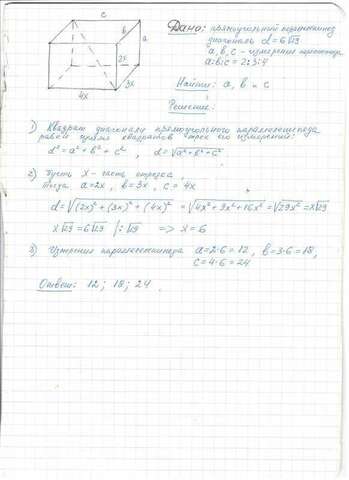 c
в
a
2x
3x
4x
Дано: прямоугольный параллелепипед
диагональ d = 6√29
a, b, c - измерения
a:b:c = 2:3:4
Найти: a, b и c
Решение:
1) Квадрат диагонали прямоугольного параллелепипеда
равен сумме квадратов трех его измерений:
d² = a² + b² + c² , d = √a² + b² + c²
2) Пусть x - часть отрезка,
Тогда a = 2x, b = 3x, c = 4x
d = √(2x)² + (3x)² + (4x)² = √4x² + 9x² + 16x² = √29x² = x√29
x√29 = 6√29 |: √29 => x = 6
3) Измерения параллелепипеда a = 2·6 = 12, b = 3·6 = 18,
c = 4·6 = 24
Ответ: 12; 18; 24.